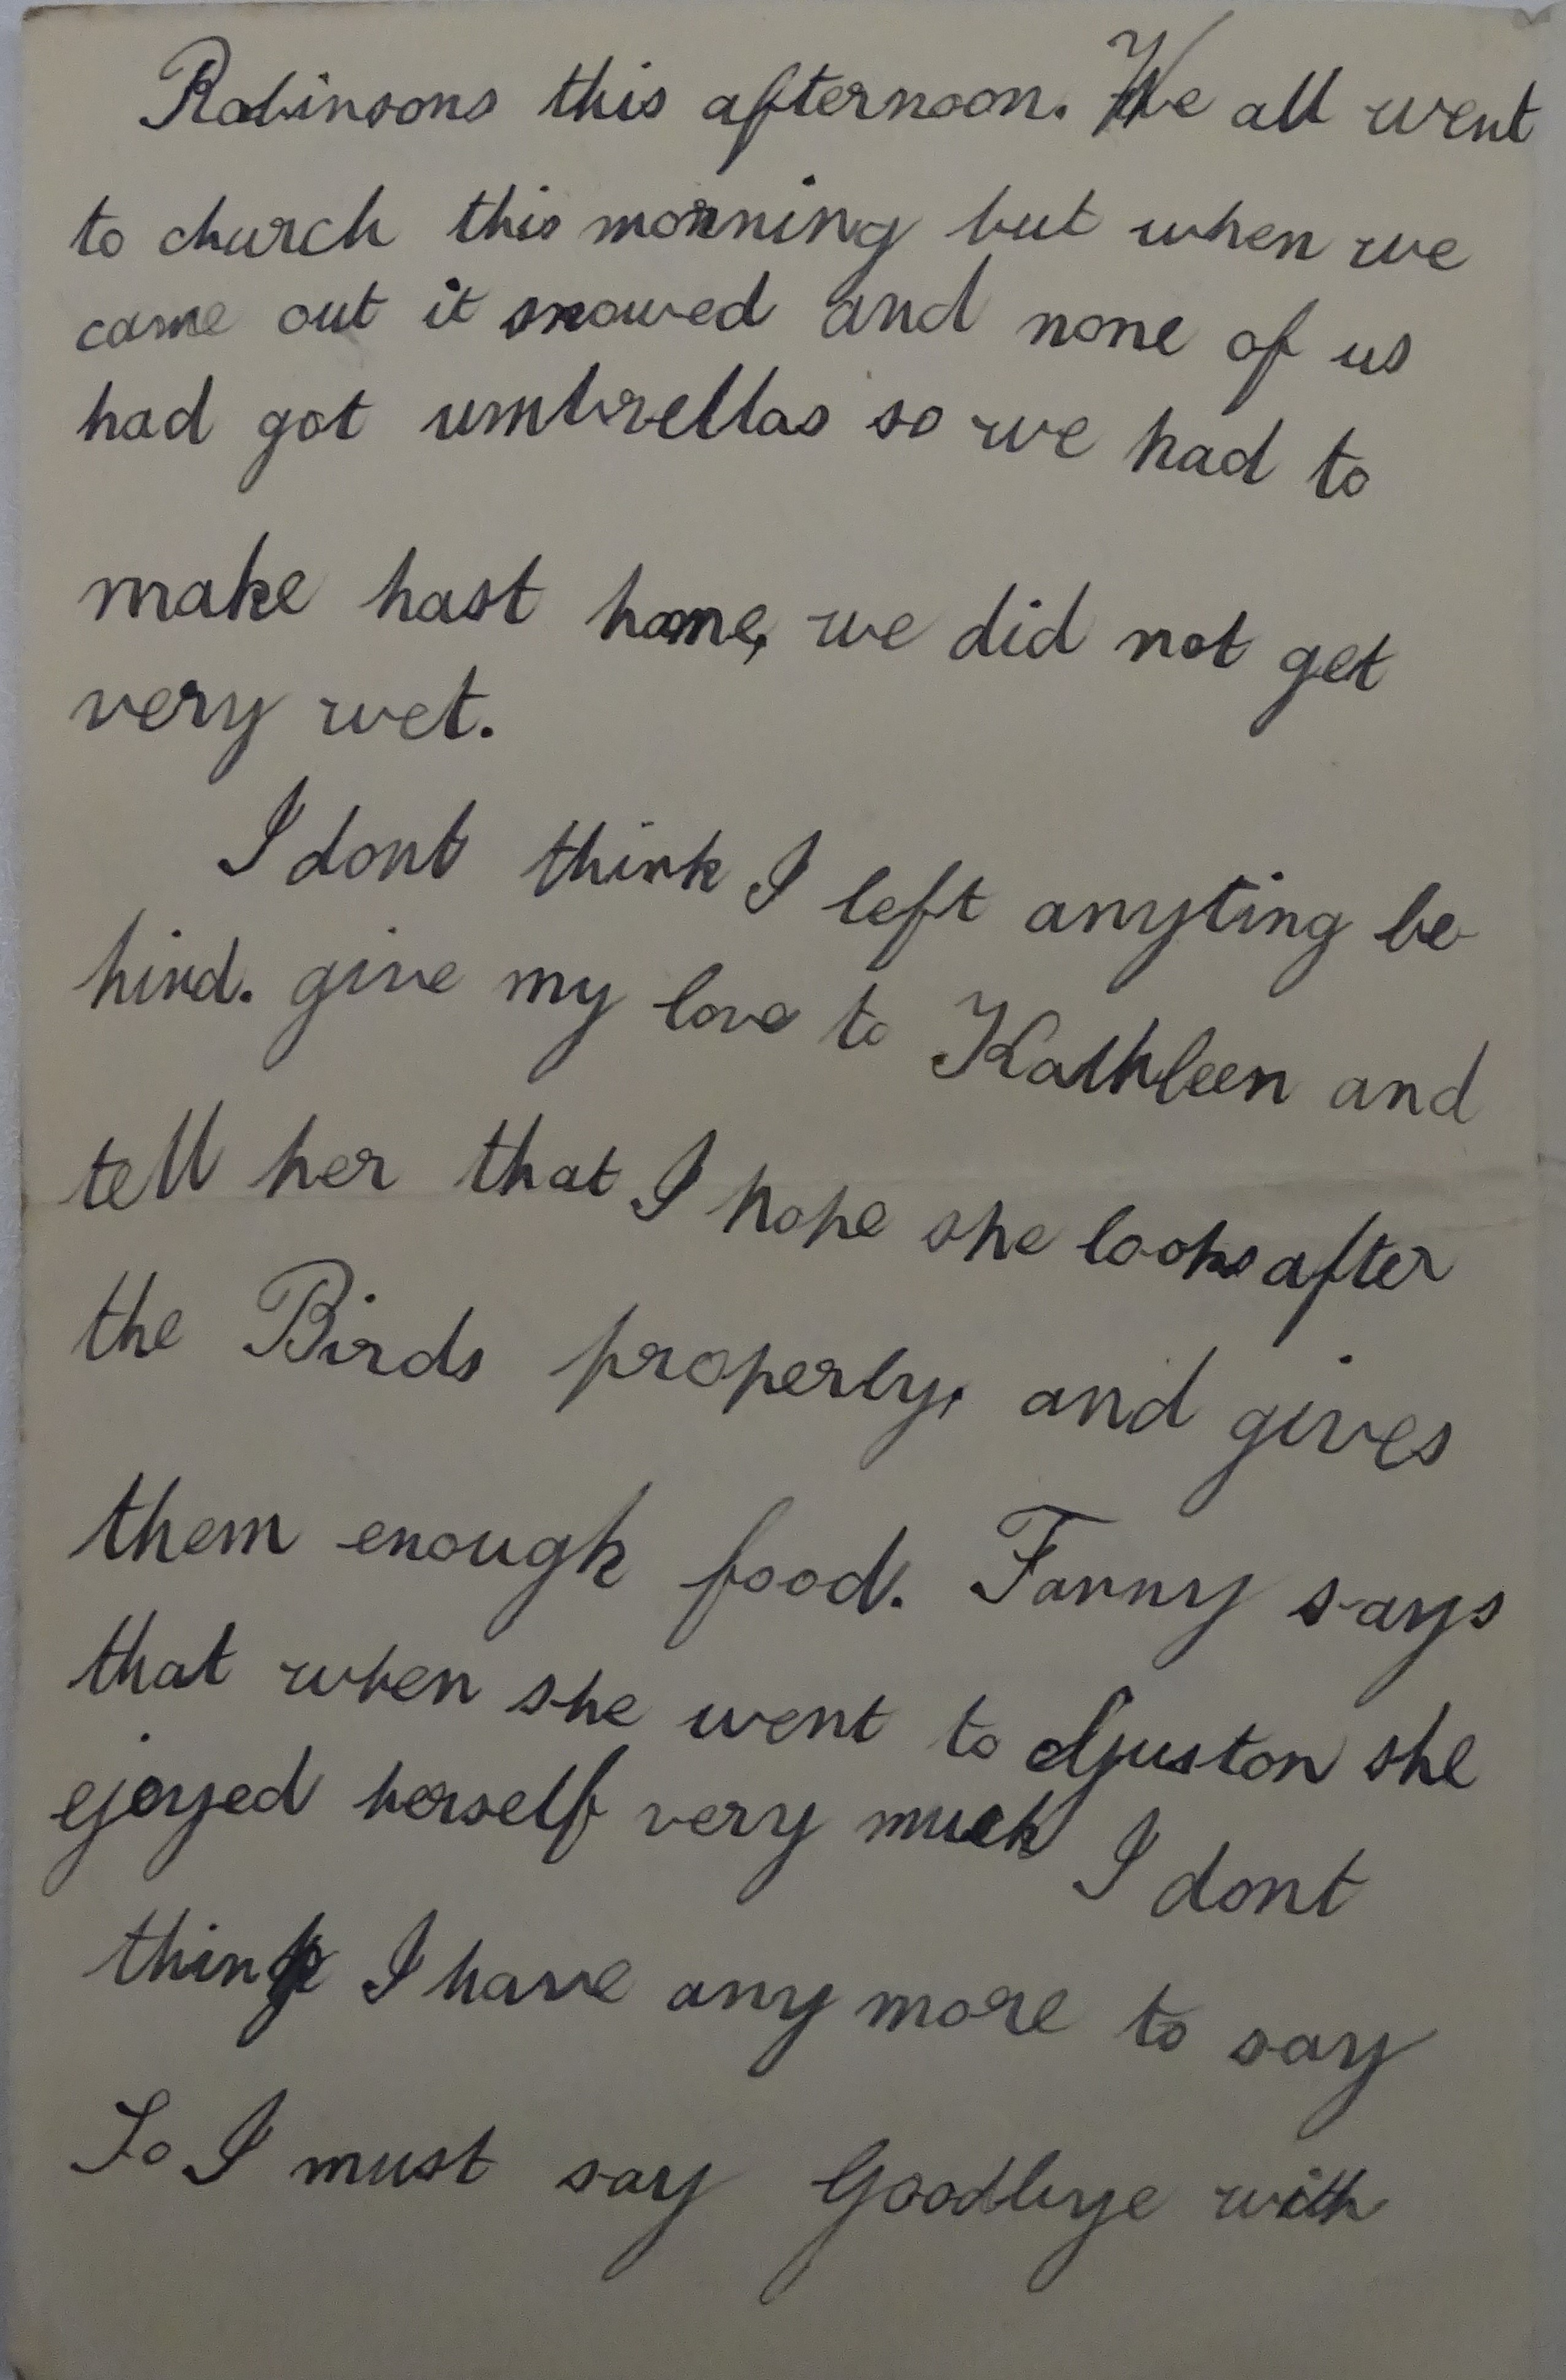 Robinsons this afternoon. We all went
to church this morning but when we
came out it snowed and none of us
had got umbrellas so we had to
make hast home, we did not get
very wet.
I dont think I left anyting be
hind. give my love to Kathleen and
tell her that I hope she looks after
the Birds properly, and gives
them enough food. Fanny says
that when she went to she
ejoyed herself very much I dont
think I have any more to say
So I must say Goodbye with